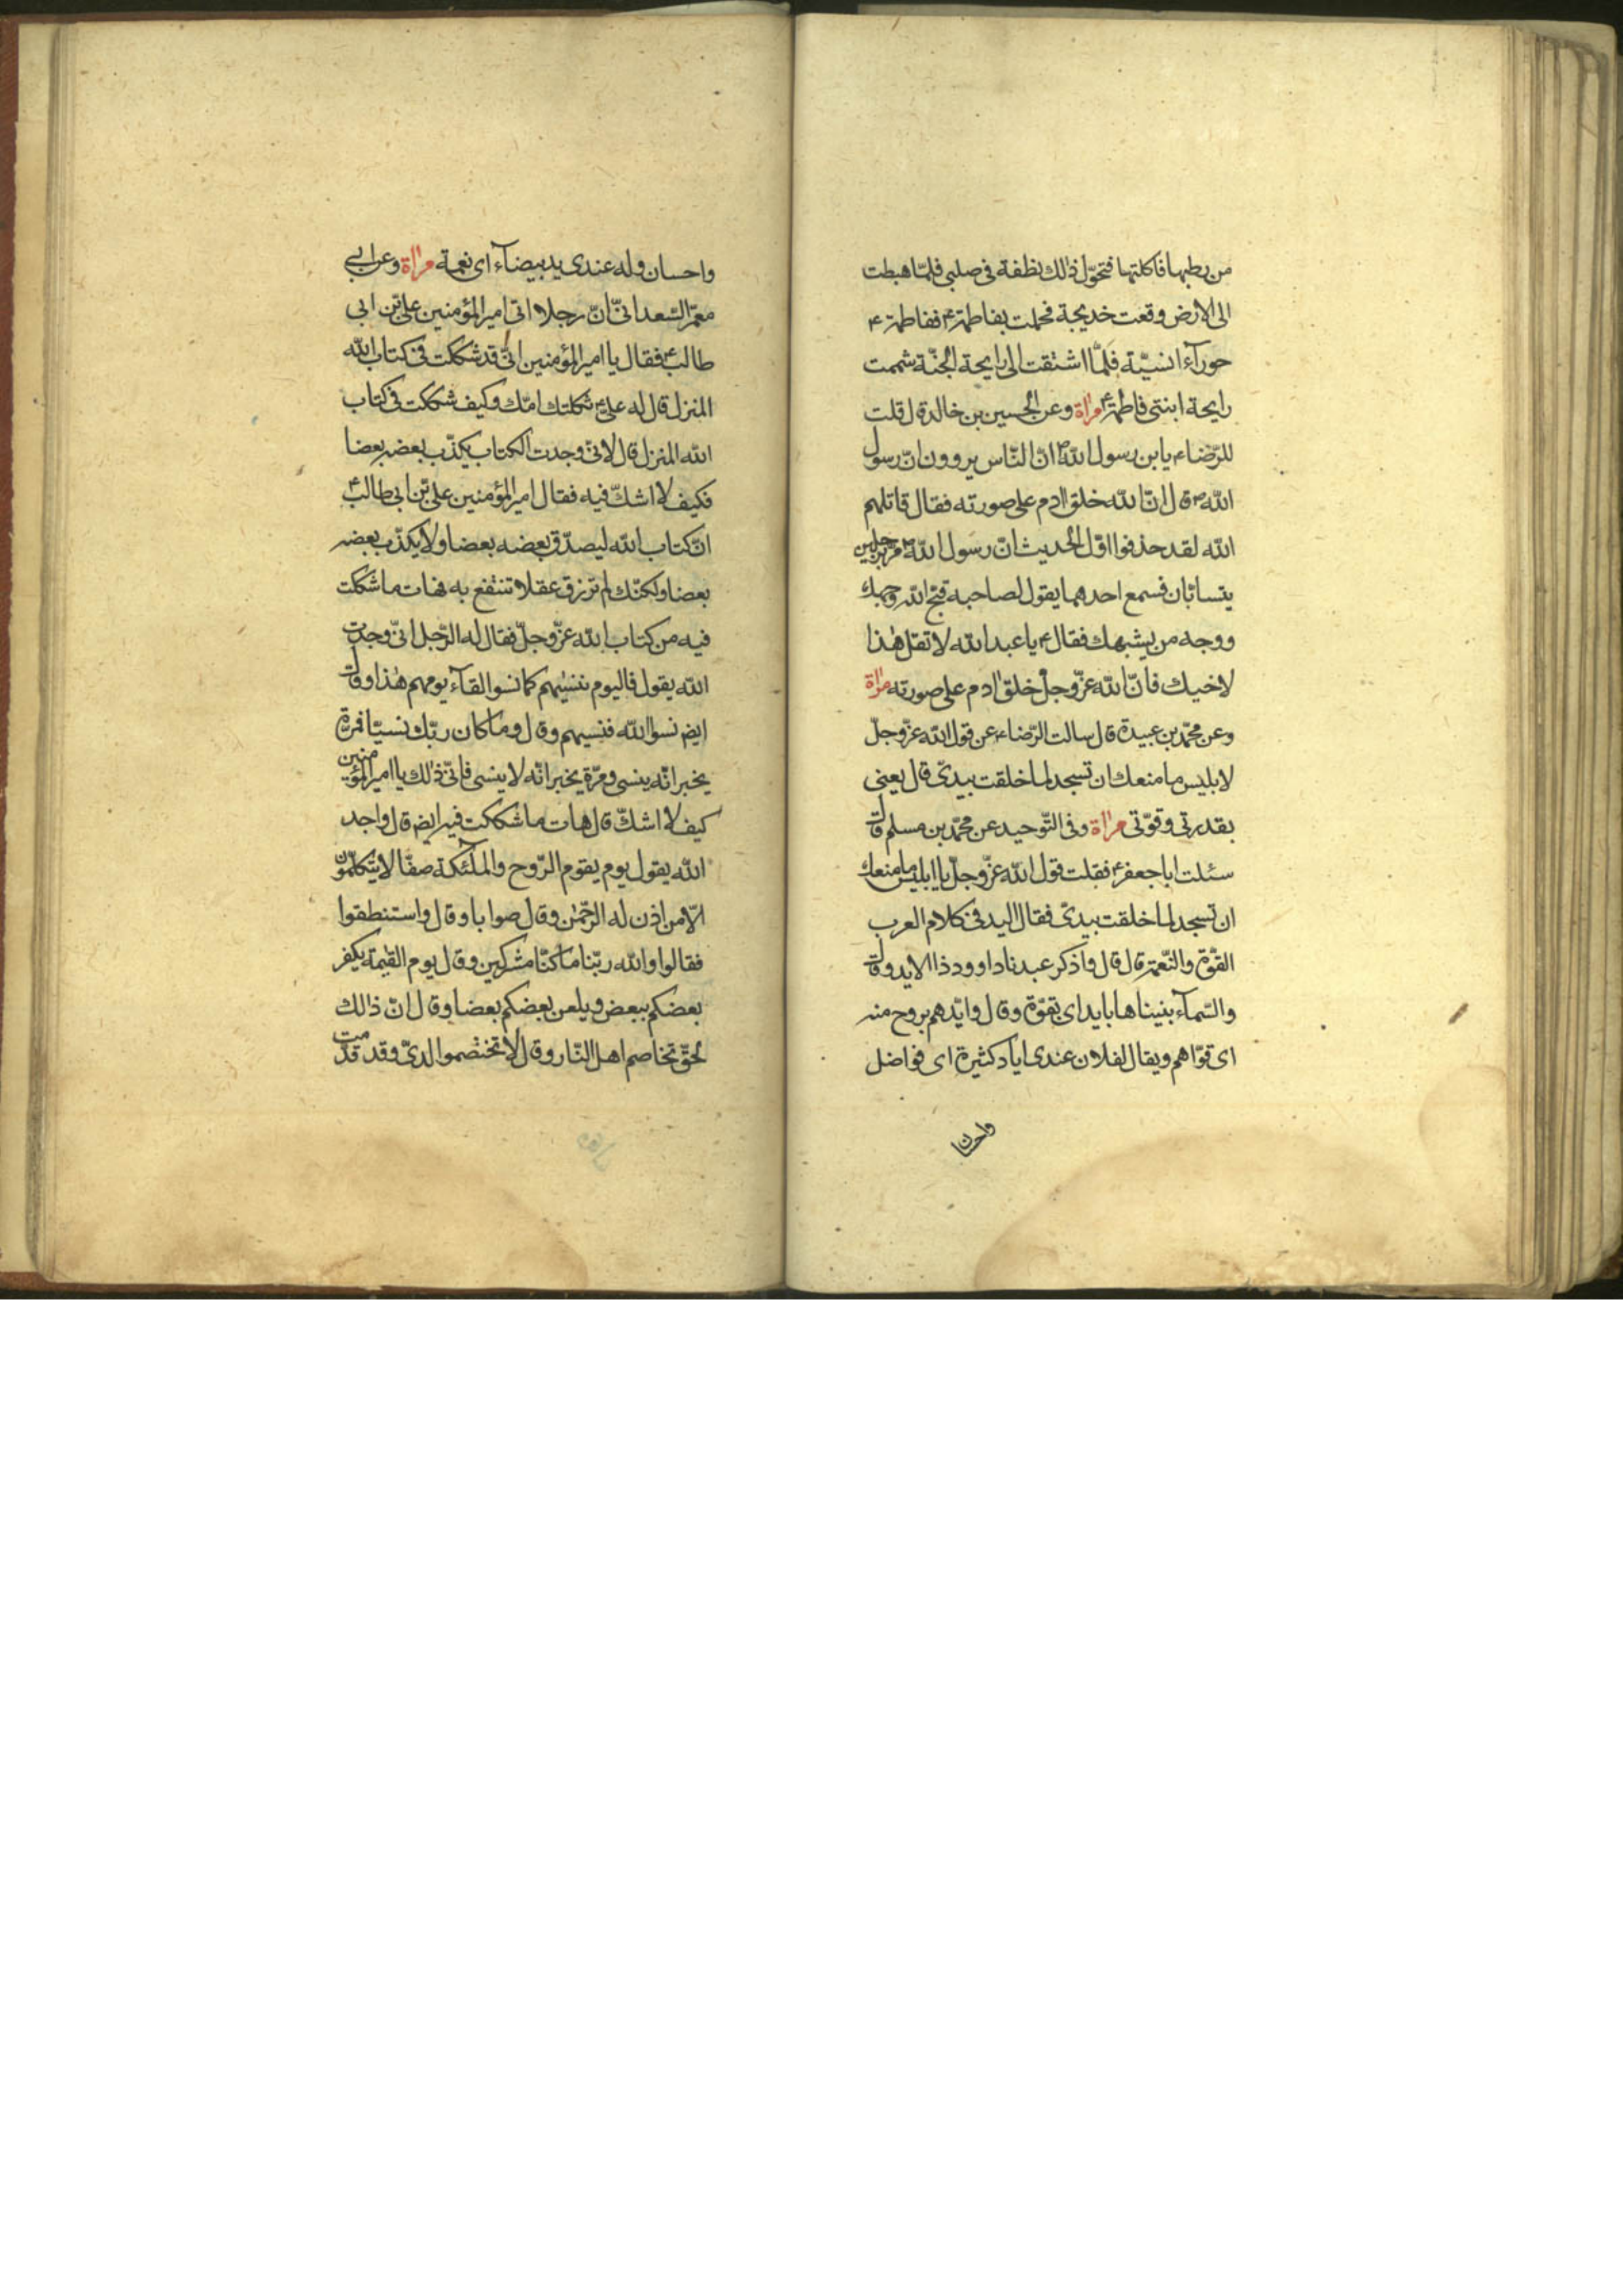 من رطبها فاكلتها فتحوّل ذالك نطفة فى صلبى فلمّا هبطت
الى الارض وقعت خديجة فحملت بفاطمة ع ففاطمة ع
حورآء انسيّة فلمّا اشتقت الى رايحة الجنّة شممت
رايحة ابنتى فاطمة ع مرآة وعن الحسين بن خالد قال قلت
للرّضاء ع يابن رسول اللّه ص انّ النّاس يروون انّ رسول
اللّه ص قال انّ اللّه خلق ادم على صورته فقال قاتلهم
اللّه لقد حذفوا اوّل الحديث انّ رسول اللّه ص مرّ برجلين
يتسابّان فسمع احدهما يقول لصاحبه قبّح اللّه وجهك
ووجه من يشبهك فقال ع يا عبد اللّه لا تقل هٰذا
لاخيك فانّ اللّه عزّ وجلّ خلق ادم على صورته مرآة
وعن محمّد بن عبيدة قال سالت الرّضاء ع عن قول اللّه عزّ وجلّ
لابليس ما منعك ان تسجد لما خلقت بيدىّ قال يعنى
بقدرتى وقوّتى مرآة وفى التّوحيد عن محمّد بن مسلم قال
سئلت ابا جعفر ع فقلت قول اللّه عزّ وجلّ يا ابليس ما منعك
ان تسجد لما خلقت بيدىّ فقال اليد فى كلام العرب
القوّة والنّعمة قال قال واذكر عبدنا داوود ذا الايد وقال
والسّمآء بنيناها بايد اى بقوّة وقال وايّدهم بروح منه
اى قوّاهم ويقال لفلان عندى اياد كثيرة اى فواضل
واحسان
واحسان وله عندى يد بيضآء اى نعمة مرآة وعن ابى
معمّر السّعدانىّ انّ رجلا اتى امير المؤمنين علىّ بن ابى
طالب ع فقال يا امير المؤمنين انّى قد شككت فى كتاب اللّه
المنزل قال له علىّ ع ثكلتك امّك وكيف شككت فى كتاب
اللّه المنزل قال لانّى وجدت الكتاب يكذّب بعضه بعضا
فكيف لا اشكّ فيه فقال امير المؤمنين علىّ بن ابى طالب ع
انّ كتاب اللّه ليصدّق بعضه بعضا ولا يكذّب بعضه
بعضا ولكنّك لم ترزق عقلا تنتفع به فهات ما شككت
فيه من كتاب اللّه عزّ وجلّ فقال له الرّجل انّى وجدت
اللّه يقول فاليوم ننسيٰهم كما نسوا لقآء يومهم هٰذا وقال
ايض نسوا اللّه فنسيهم وقال وما كان ربّك نسيّا فمرّة
يخبر انّه ينسى ومرّة يخبر انّه لا ينسى فانّى ذالك يا امير المؤمنين
كيف لا اشكّ قال هات ما شككت فيه ايض قال واجد
اللّه يقول يوم يقوم الرّوح والملٰئكة صفّا لا يتكلّمون
الّا من اذن له الرّحمٰن وقال صوابا وقال واستنطقوا
فقالوا واللّه ربّنا ما كنّا مشركين وقال يوم القيٰمة يكفر
بعضكم ببعض ويلعن بعضكم بعضا وقال انّ ذالك
لحقّ تخاصم اهل النّار وقال لا تختصموا لدىّ وقد قدّمت